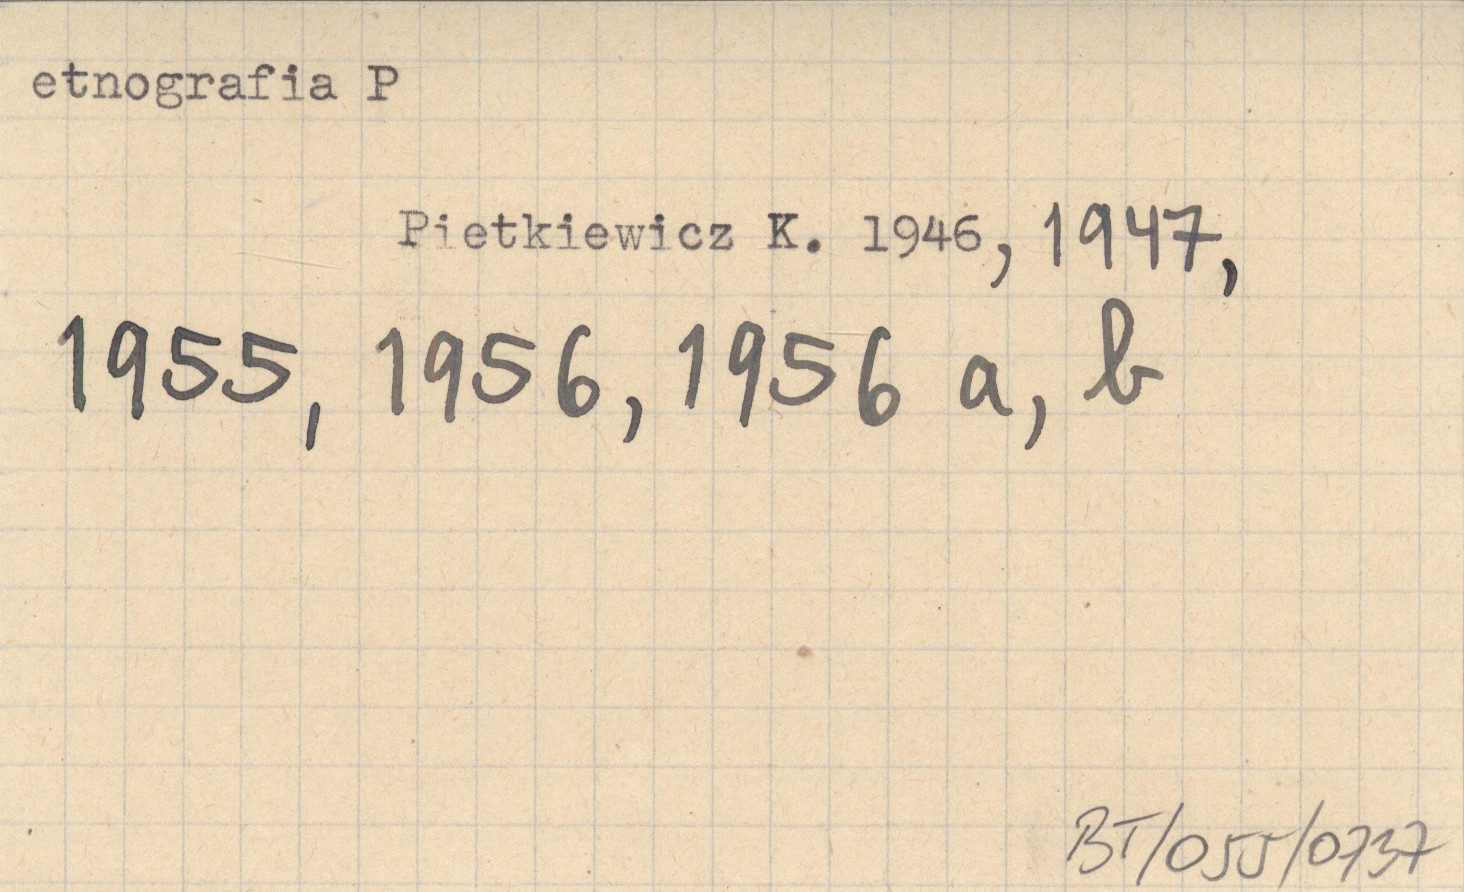 etnografia P
Pietkiewicz K. 1946, 1947,
1955, 1956, 1956 a, b
BT/055/0737